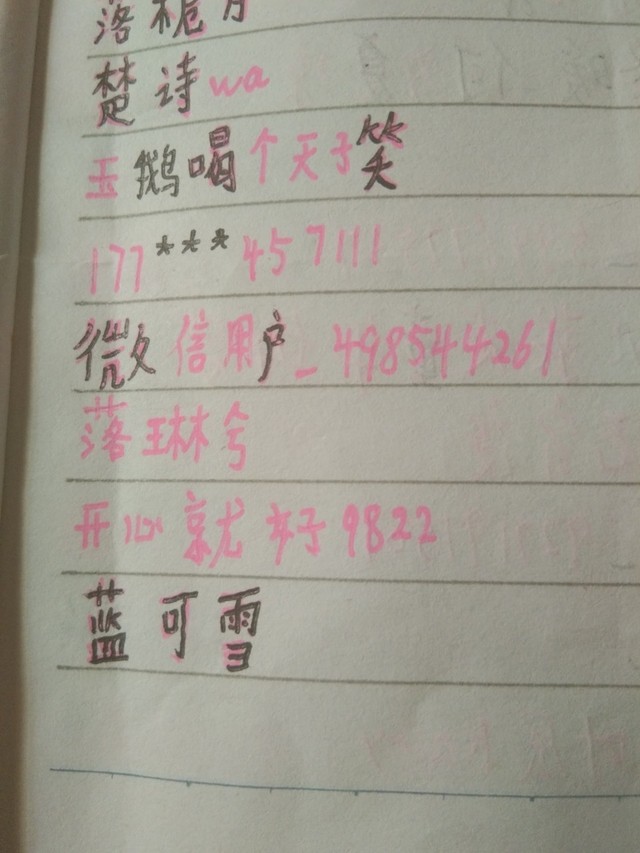 落栀
楚诗wa
玉鹅喝个天子笑
177***457111
微信用户_498544261
落琳兮
开心就好9822
蓝可雪